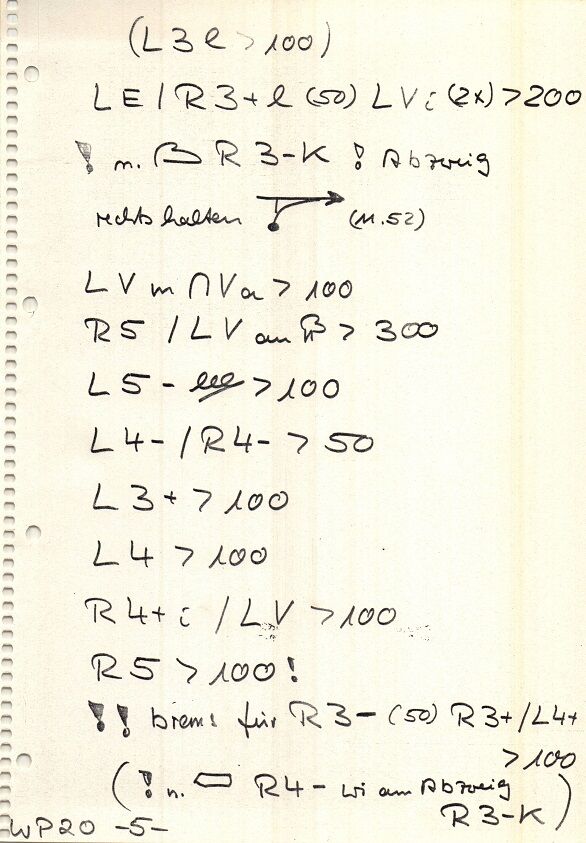 (L3l > 100)
LE / R3+l (50) LVi (2x) > 200
! n. R3-K ! Abzweig
rechts halten (11.52)
LV in ∩ Va > 100
R5 / LV am > 300
L5 - > 100
L4- / R4- > 50
L3+ > 100
L4 > 100
R4+i / LV > 100
R5 > 100!
!! brems für R3- (50) R3+/L4+
> 100
(! n. R4- wi am Abzweig
R3-K)
WP20 -5-